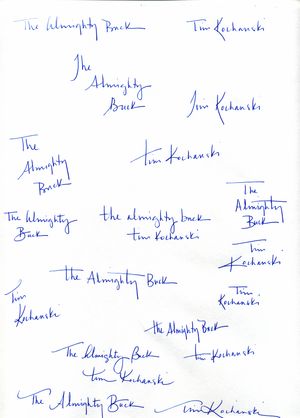 The Almighty Buck
Tim Kochanski
The
Almighty
Buck
Tim Kochanski
The
Almighty
Buck
tim Kochanski
The
Almighty
Buck
The Almighty
Buck
the almighty buck
tim Kochanski
Tim
Kochanski
the Almighty Buck
Tim
Kochanski
Tim
Kochanski
the Almighty Buck
The Almighty Buck
tim Kochanski
tim Kochanski
The Almighty Buck
Tim Kochanski